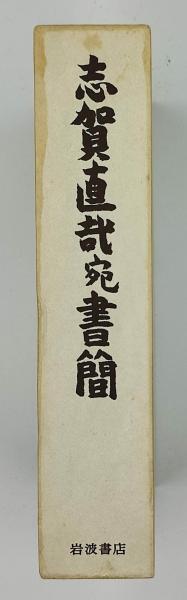 志賀直哉宛書簡
岩波書店